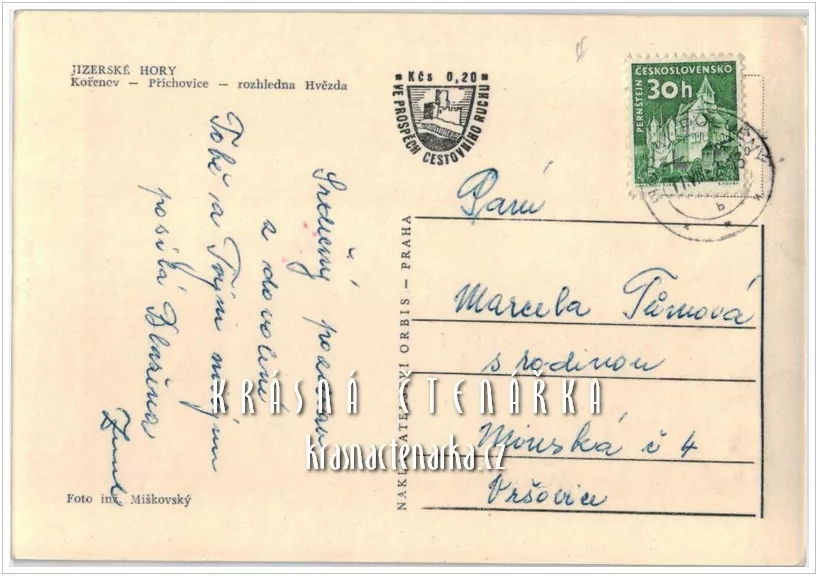 JIZERSKÉ HORY
Kořenov — Příchovice — rozhledna Hvězda
Kčs 0,20
VE PROSPĚCH CESTOVNÍHO RUCHU
ČESKOSLOVENSKO
30h
PERNŠTEJN
Srdečný pozdrav
z dovolené
Tobě a Tvým milým
posílá Blažena
NAKLADATELSTVÍ ORBIS — PRAHA
Paní
Marcela Tůmová
s rodinou
č 4
Vršovice
KRÁSNÁ ČTENÁŘKA
krasnactenarka.cz
Foto inž. Miškovský